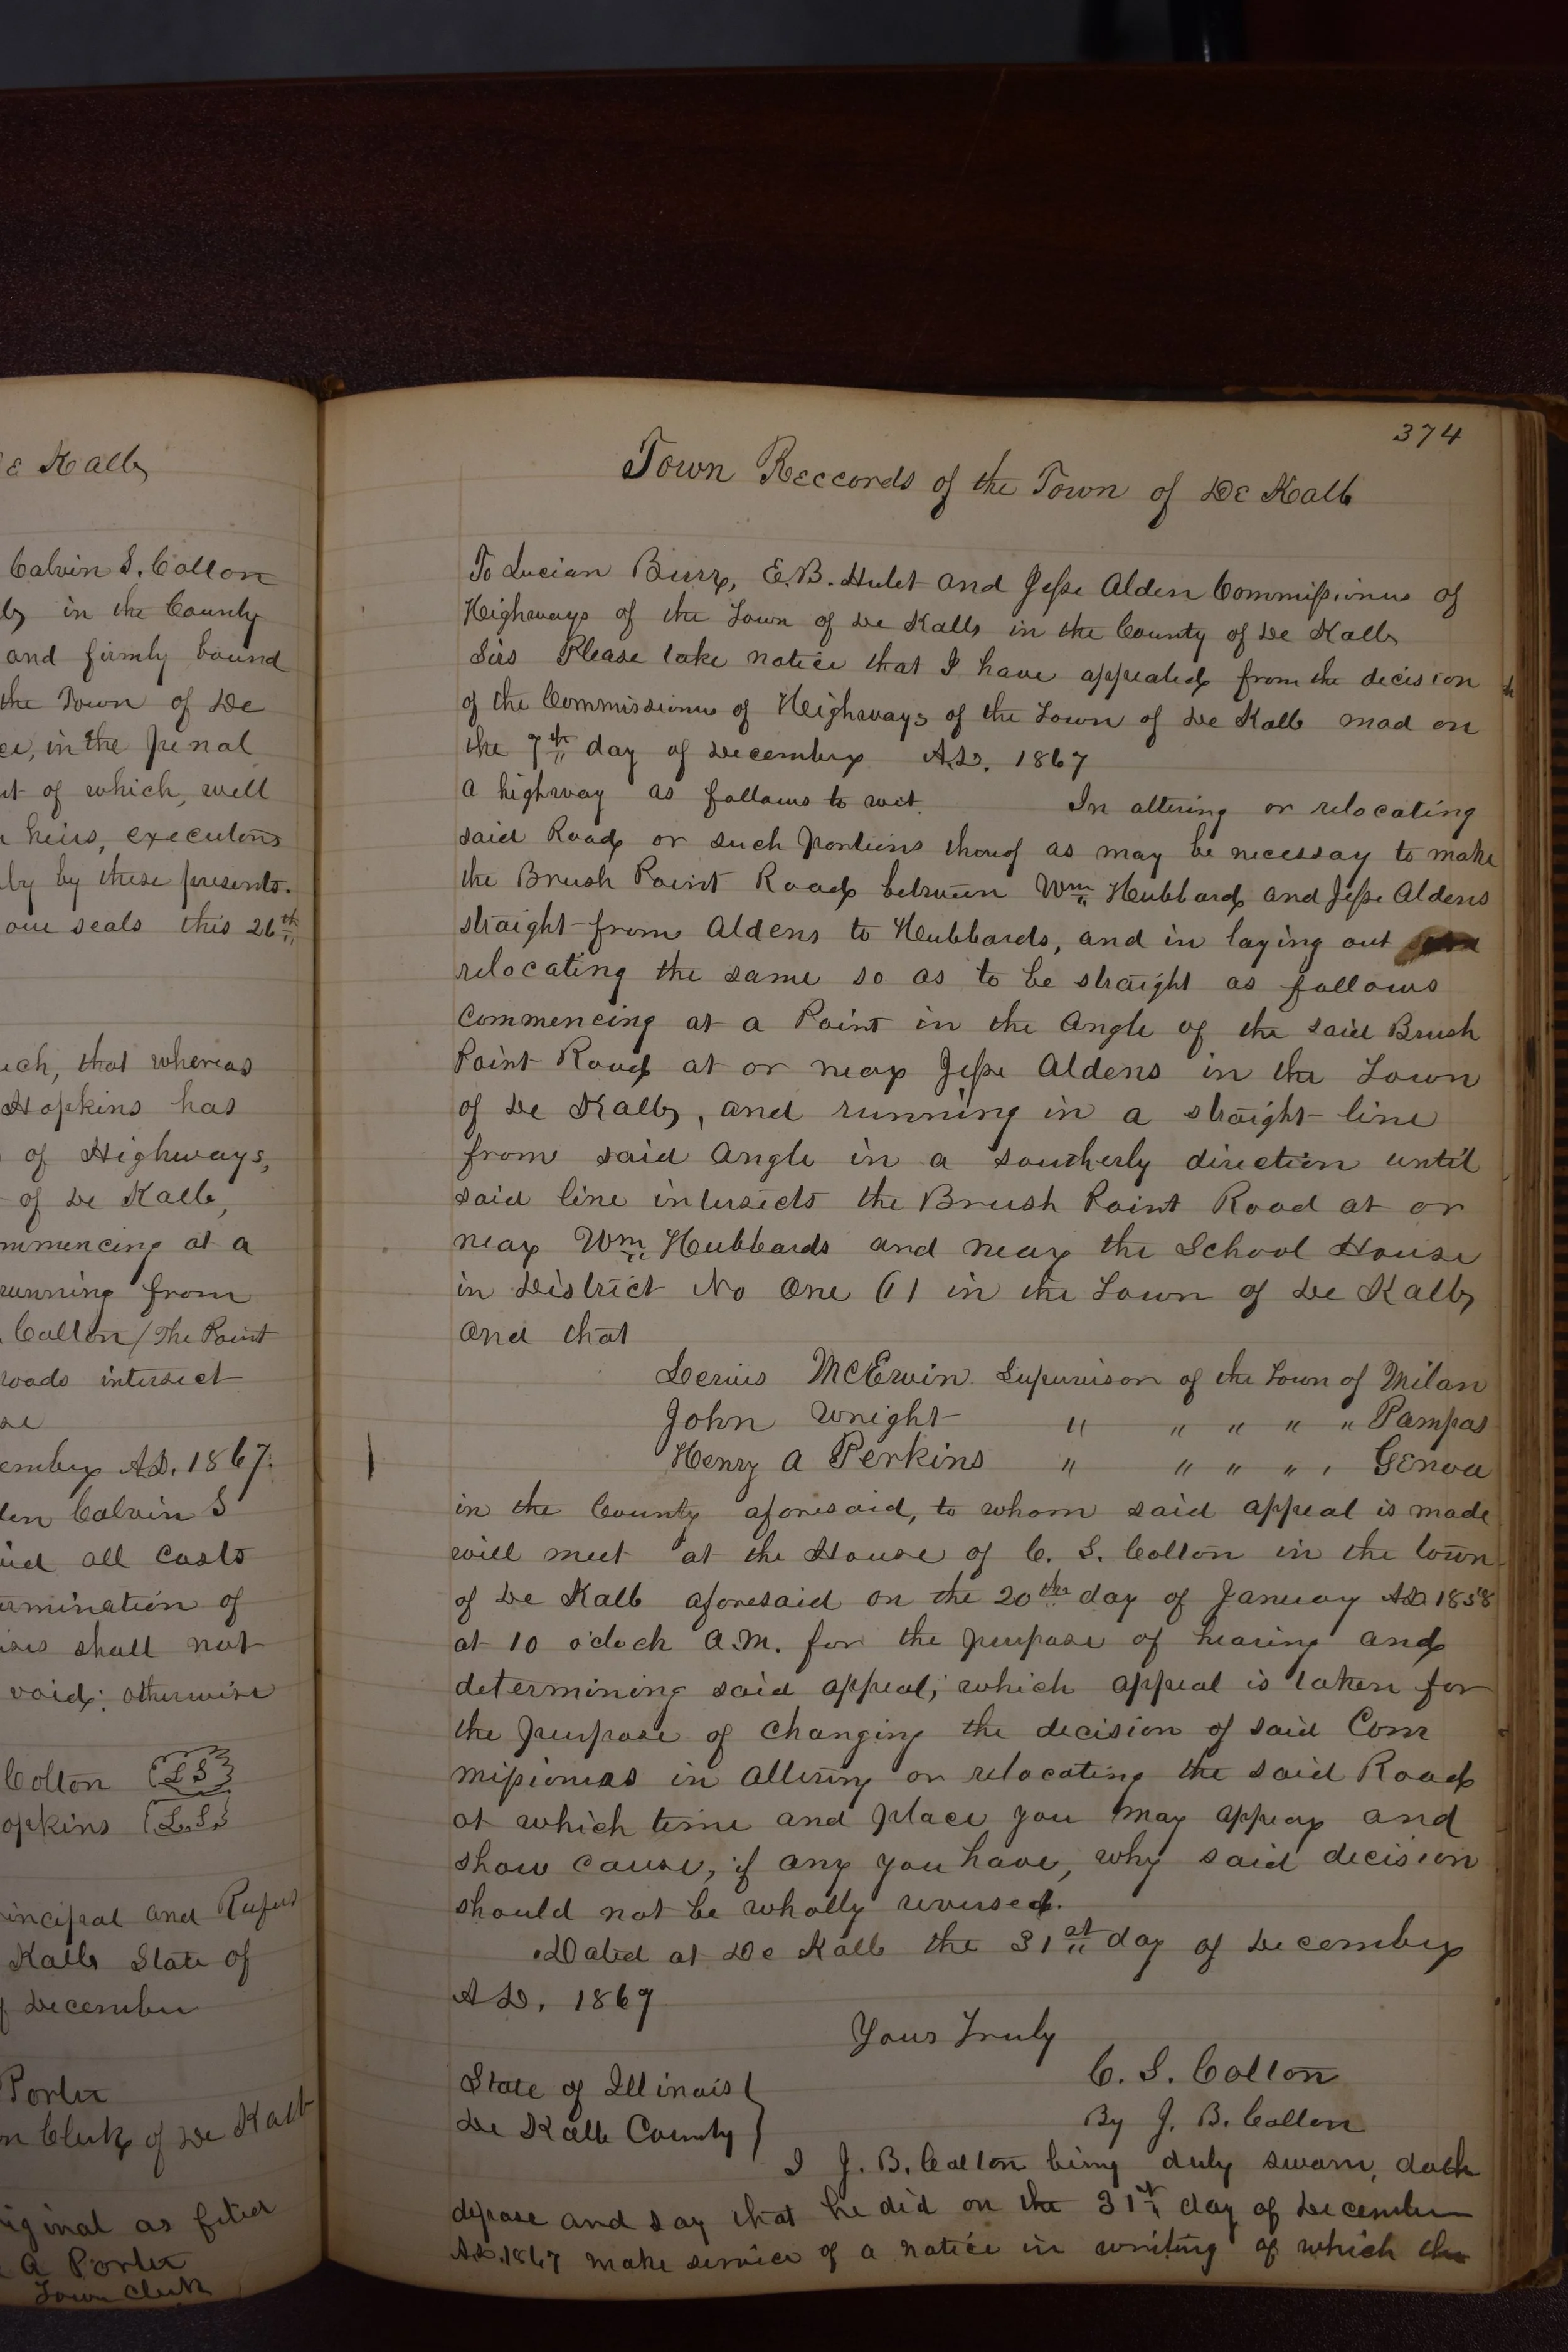 e Kalb
Calvin S. Colton
lb in the County
and firmly bound
the Town of De
ce, in the penal
nt of which, well
r heirs, executors
ly by these presents.
our seals this 26th
uch, that whereas
Hopkins has
of Highways,
of De Kalb,
mmencing at a
running from
Colton / The Point
roads intersect
se
ember A.D. 1867.
den Calvin S
aid all costs
ermination of
ises shall not
void: otherwise
Colton (L S)
opkins (L.S.)
rincipal and Rufus
Kalb State of
f December
Porter
n Clerk of De Kalb
riginal as filed
A Porter
Town Clerk
374
Town Reccords of the Town of De Kalb
To Lucian Burr, E.B. Hulet and Jesse Alden Commissioners of
Heighways of the Town of De Kalb in the County of De Kalb
Sirs Please take notice that I have appealed from the decision
of the Commissioners of Heighways of the Town of De Kalb mad on
the 7th day of December A.D. 1867
a highway as follows to wit. In altering or relocating
said Road or such portions therof as may be necessay to make
the Brush Point Road between Wm Hubbard and Jesse Aldens
straight from Aldens to Hubbards, and in laying out
relocating the same so as to be straight as follows
Commencing at a Point in the Angle of the said Brush
Point Road at or near Jesse Aldens in the Town
of De Kalb, and running in a straight line
from said Angle in a southerly direction until
said line intersects the Brush Point Road at or
near Wm Hubbards and near the School House
in District No One (1) in the Town of De Kalb
and that
McErwin Supervison of the Town of Milan
John Wright " " " " " Pampas
Henry A Perkins " " " " , Genoa
in the County aforesaid, to whom said appeal is made
will meet at the House of C. S. Colton in the town
of De Kalb aforesaid on the 20th day of January A.D. 1858
at 10 oclock A.M. for the purpose of hearing and
determining said appeal; which appeal is taken for
the purpose of changing the decision of said Com
missioners in altering or relocating the said Road
at which time and place you may appear and
show cause, if any you have, why said decision
should not be wholly reversed.
Dated at De Kalb the 31st day of December
A.D. 1867
Yours Truly
C. S. Colton
By J. B. Colton
State of Illinois
De Kalb County
I J. B. Colton being duly sworn, doth
depose and say that he did on the 31st day of December
A.D. 1867 make service of a notice in writing of which the